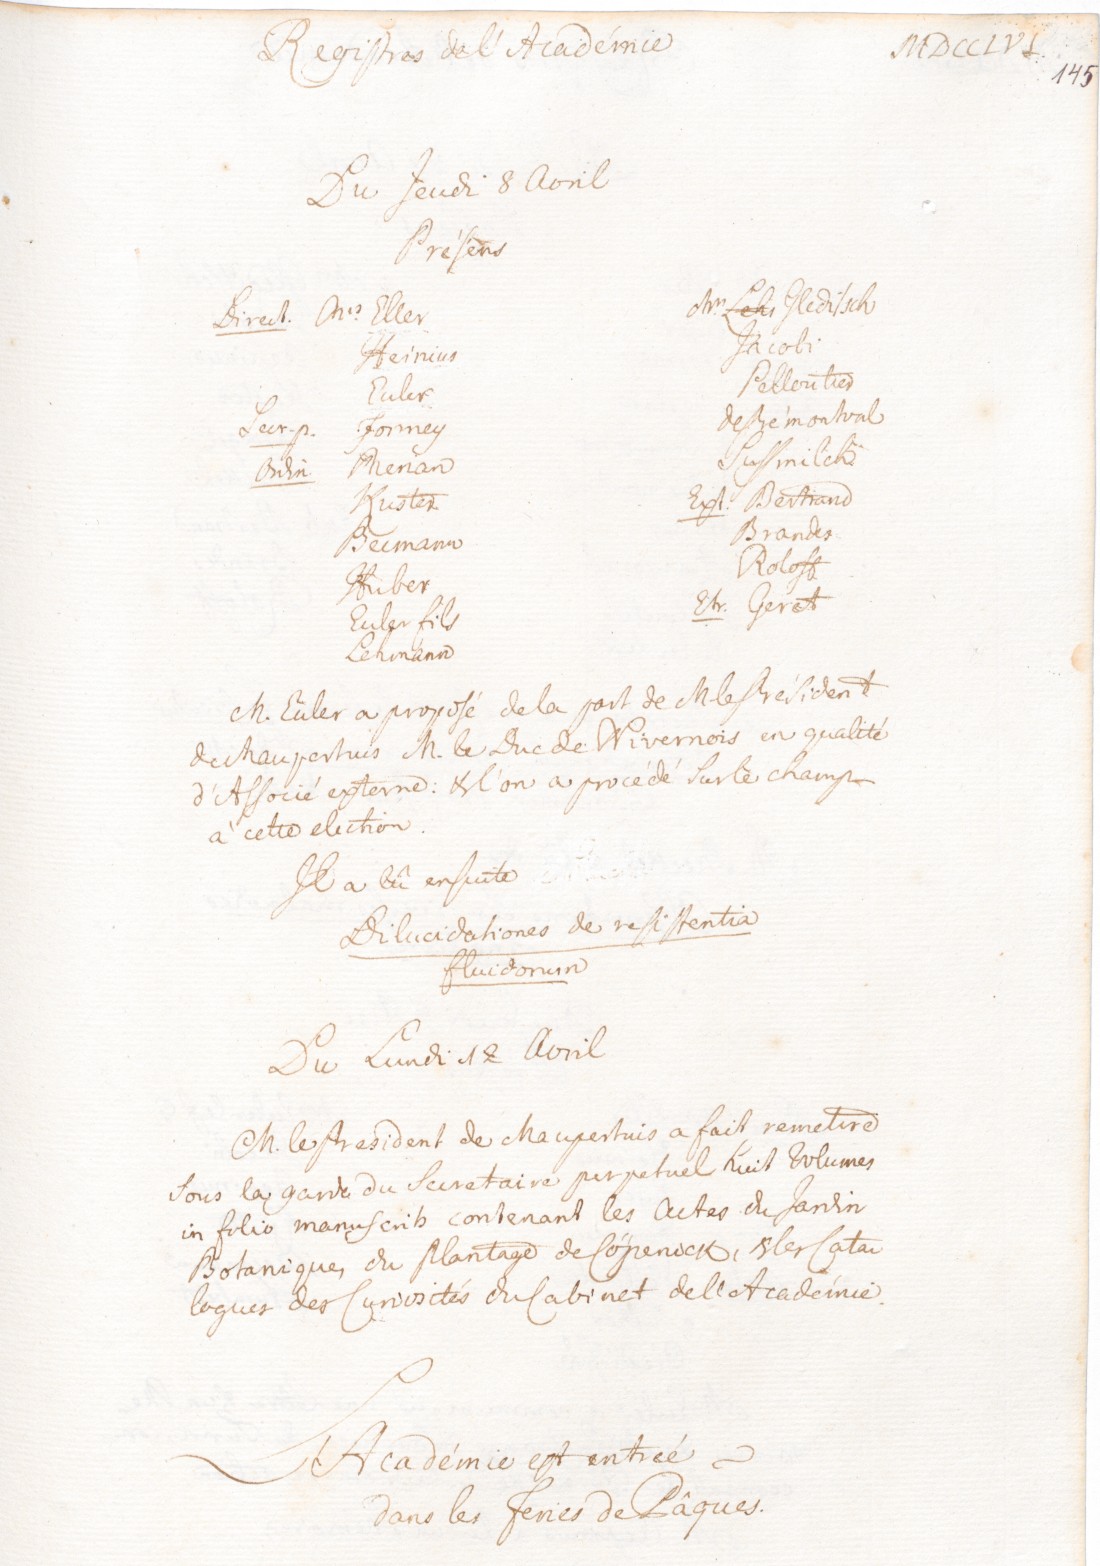 Registres de l'Académie
MDCCLVI
145
Du Jeudi 8 Avril
Présens
Direct. Mrs Eller
Heinius
Euler
Secr. p. Formey
Ordin. Merian
Kuster
Becmann
Huber
Euler fils
Lehmann
Mrs Leh Gleditsch
Jacobi
Pelloutier
de Prémontval
Sussmilch
Ext. Bertrand
Brandes
Roloff
Etr. Geret
M. Euler a proposé de la part de M. le Président
de Maupertuis M. le Duc de Nivernois en qualité
d'Associé externe: & l'on a procédé sur le champ
à cette election.
Il a lû ensuite
Dilucidationes de resistentia
fluidorum
Du Lundi 12 Avril
M. le President de Maupertuis a fait remettre
sous la garde du Secretaire perpetuel huit Volumes
in folio manuscrits contenant les Actes du Jardin
Botanique, du Plantage de Cöpenick, & les Cata
logues des Curiosités du Cabinet de l'Académie.
L'Académie est entrée
dans les feries de Pâques.